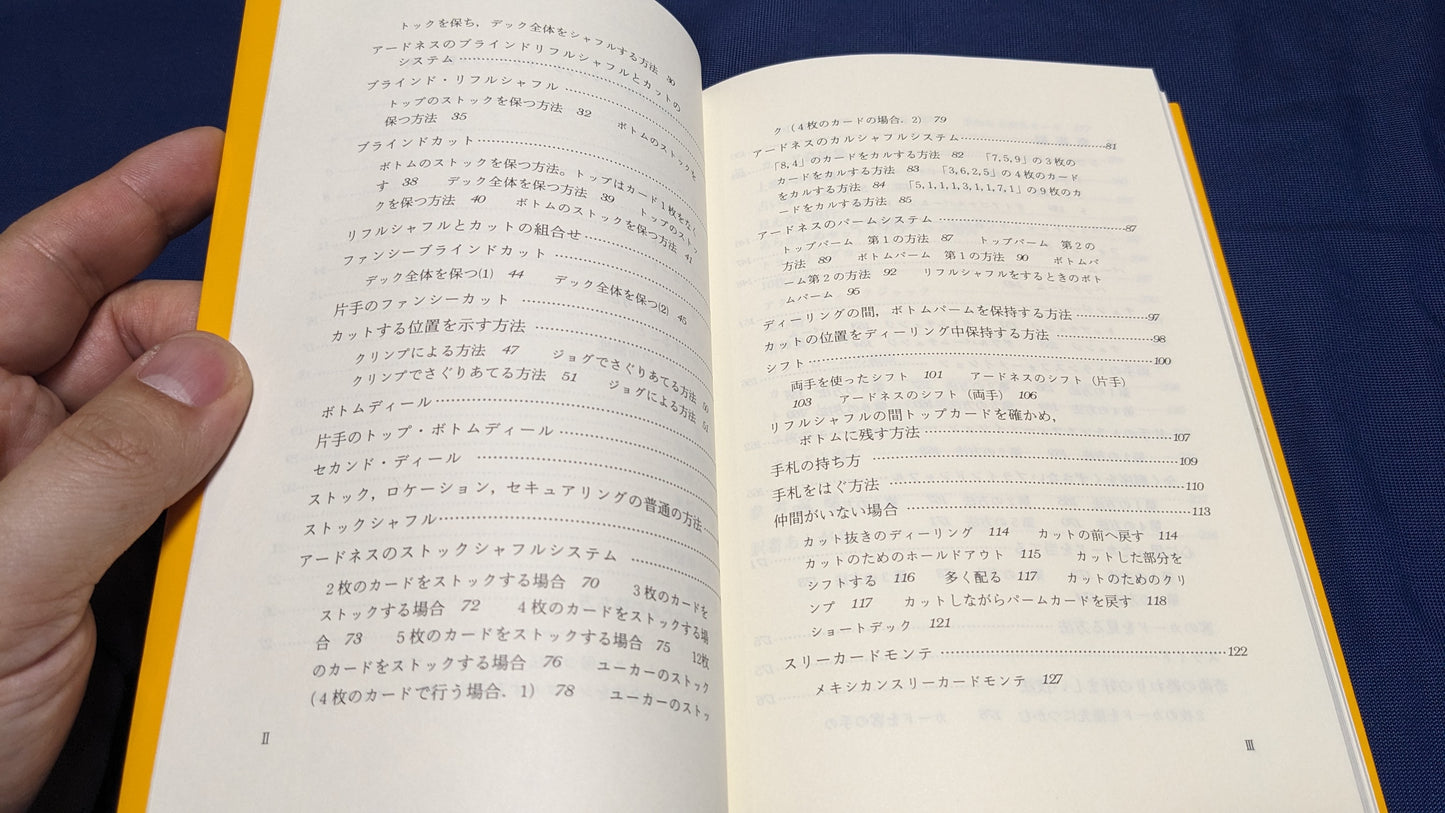 トックを保ち，デック全体をシャフルする方法 30
アードネスのブラインドリフルシャフルとカットの
システム
ブラインド・リフルシャフル
トップのストックを保つ方法 32 ボトムのストックを
保つ方法 35
ブラインドカット
ボトムのストックを保つ方法。トップはカード1枚をなく
す 38 デック全体を保つ方法 39 トップのストッ
クを保つ方法 40 ボトムのストックを保つ方法 41
リフルシャフルとカットの組合せ
ファンシーブラインドカット
デック全体を保つ(1) 44 デック全体を保つ(2) 45
片手のファンシーカット
カットする位置を示す方法
クリンプによる方法 47 ジョグでさぐりあてる方法 50
クリンプでさぐりあてる方法 51 ジョグによる方法 51
ボトムディール
片手のトップ・ボトムディール
セカンド・ディール
ストック，ロケーション，セキュアリングの普通の方法
ストックシャフル
アードネスのストックシャフルシステム
2枚のカードをストックする場合 70 3枚のカードを
ストックする場合 72 4枚のカードをストックする場
合 73 5枚のカードをストックする場合 75 12枚
のカードをストックする場合 76 ユーカーのストック
(4枚のカードで行う場合．1) 78 ユーカーのストッ
Ⅱ
ク（4枚のカードの場合．2) 79
アードネスのカルシャフルシステム……81
「8,4」のカードをカルする方法 82 「7,5,9」の3枚の
カードをカルする方法 83 「3,6,2,5」の4枚のカード
をカルする方法 84 「5,1,1,1,3,1,1,7,1」の9枚のカ
ードをカルする方法 85
アードネスのパームシステム……87
トップパーム 第1の方法 87 トップパーム 第2の
方法 89 ボトムパーム 第1の方法 90 ボトムパ
ーム第2の方法 92 リフルシャフルをするときのボト
ムパーム 95
ディーリングの間，ボトムパームを保持する方法……97
カットの位置をディーリング中保持する方法……98
シフト……100
両手を使ったシフト 101 アードネスのシフト（片手）
103 アードネスのシフト（両手） 106
リフルシャフルの間トップカードを確かめ，
ボトムに残す方法……107
手札の持ち方……109
手札をはぐ方法……110
仲間がいない場合……113
カット抜きのディーリング 114 カットの前へ戻す 114
カットのためのホールドアウト 115 カットした部分を
シフトする 116 多く配る 117 カットのためのクリ
ンプ 117 カットしながらパームカードを戻す 118
ショートデック 121
スリーカードモンテ……122
メキシカンスリーカードモンテ 127
Ⅲ